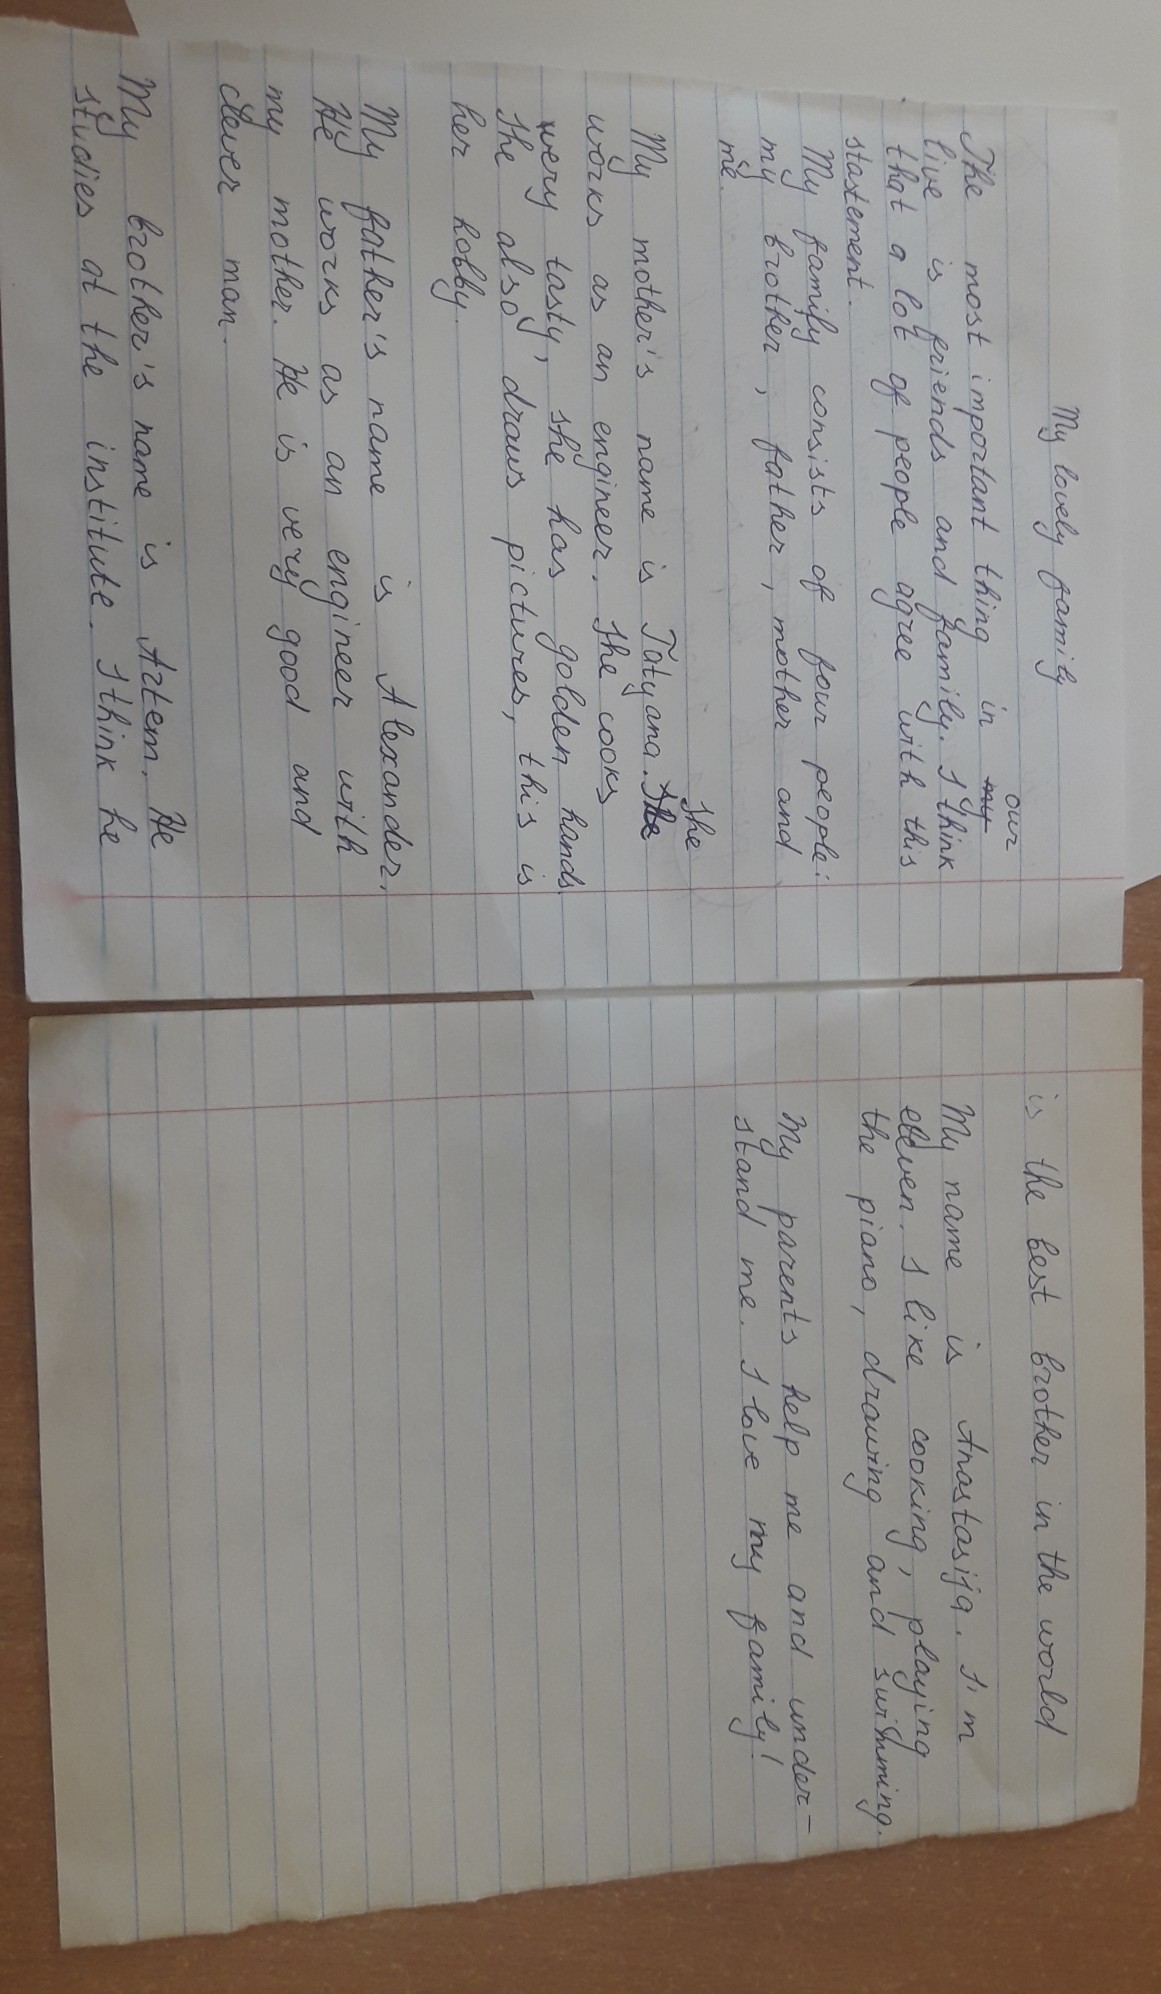 My lovely family
The most important thing in my our
live is friends and family. I think
that a lot of people agree with this
stastement.
My family consists of four people:
my brother, father, mother and
me.
My mother's name is Tatyana. She She
works as an engineer. She cooks
very tasty, she has golden hands.
She also draws pictures, this is
her hobby.
My father's name is Alexander.
He works as an engineer with
my mother. He is very good and
clever man.
My brother's name is Artem. He
studies at the institute. I think he
is the best brother in the world
My name is Anastasija. I'm
eleven. I like cooking, playing
the piano, drawing and swimming.
My parents help me and under-
stand me. I love my family!